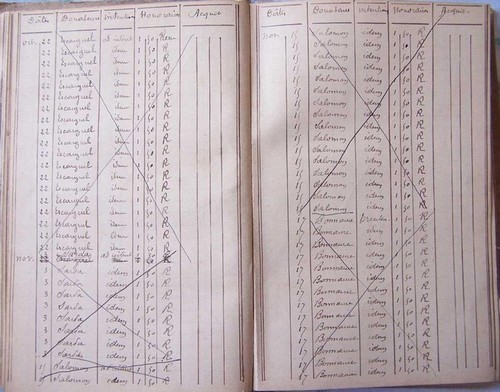 Dates Donateurs intention Honoraires Acquit
oct. 22 Escarguel ad intent 1 50 R
22 Escarguel idem 1 50 R
22 Escarguel idem 1 50 R
22 Escarguel idem 1 50 R
22 Escarguel idem 1 50 R
22 Escarguel idem 1 50 R
22 Escarguel idem 1 50 R
22 Escarguel idem 1 50 R
22 Escarguel idem 1 50 R
22 Escarguel idem 1 50 R
22 Escarguel idem 1 50 R
22 Escarguel idem 1 50 R
22 Escarguel idem 1 50 R
22 Escarguel idem 1 50 R
22 Escarguel idem 1 50 R
22 Escarguel idem 1 50 R
22 Escarguel idem 1 50 R
22 Escarguel idem 1 50 R
nov. Sarda ad intent 1 50 R
3 Sarda idem 1 50 R
3 Sarda idem 1 50 R
3 Sarda idem 1 50 R
3 Sarda idem 1 50 R
3 Sarda idem 1 50 R
3 Sarda idem 1 50 R
3 Sarda idem 1 50 R
15 Salomon 1 50 R
15 Salomon idem 1 50 R
Dates Donateurs intention Honoraires Acquis
nov. 15 Salomon idem 1 50 R
15 Salomon idem 1 50 R
15 Salomon idem 1 50 R
15 Salomon idem 1 50 R
15 Salomon idem 1 50 R
15 Salomon idem 1 50 R
15 Salomon idem 1 50 R
15 Salomon idem 1 50 R
15 Salomon idem 1 50 R
15 Salomon idem 1 50 R
15 Salomon idem 1 50 R
15 Salomon idem 1 50 R
15 Salomon idem 1 50 R
15 Salomon idem 1 50 R
15 Salomon idem 1 50 R
15 Salomon idem 1 50 R
17 Bonnaure 1 50 R
17 Bonnaure idem 1 50 R
17 Bonnaure idem 1 50 R
17 Bonnaure idem 1 50 R
17 Bonnaure idem 1 50 R
17 Bonnaure idem 1 50 R
17 Bonnaure idem 1 50 R
17 Bonnaure idem 1 50 R
17 Bonnaure idem 1 50 R
17 Bonnaure idem 1 50 R
17 Bonnaure idem 1 50 R
17 Bonnaure idem 1 50 R
17 Bonnaure idem 1 50 R
17 Bonnaure idem 1 50 R